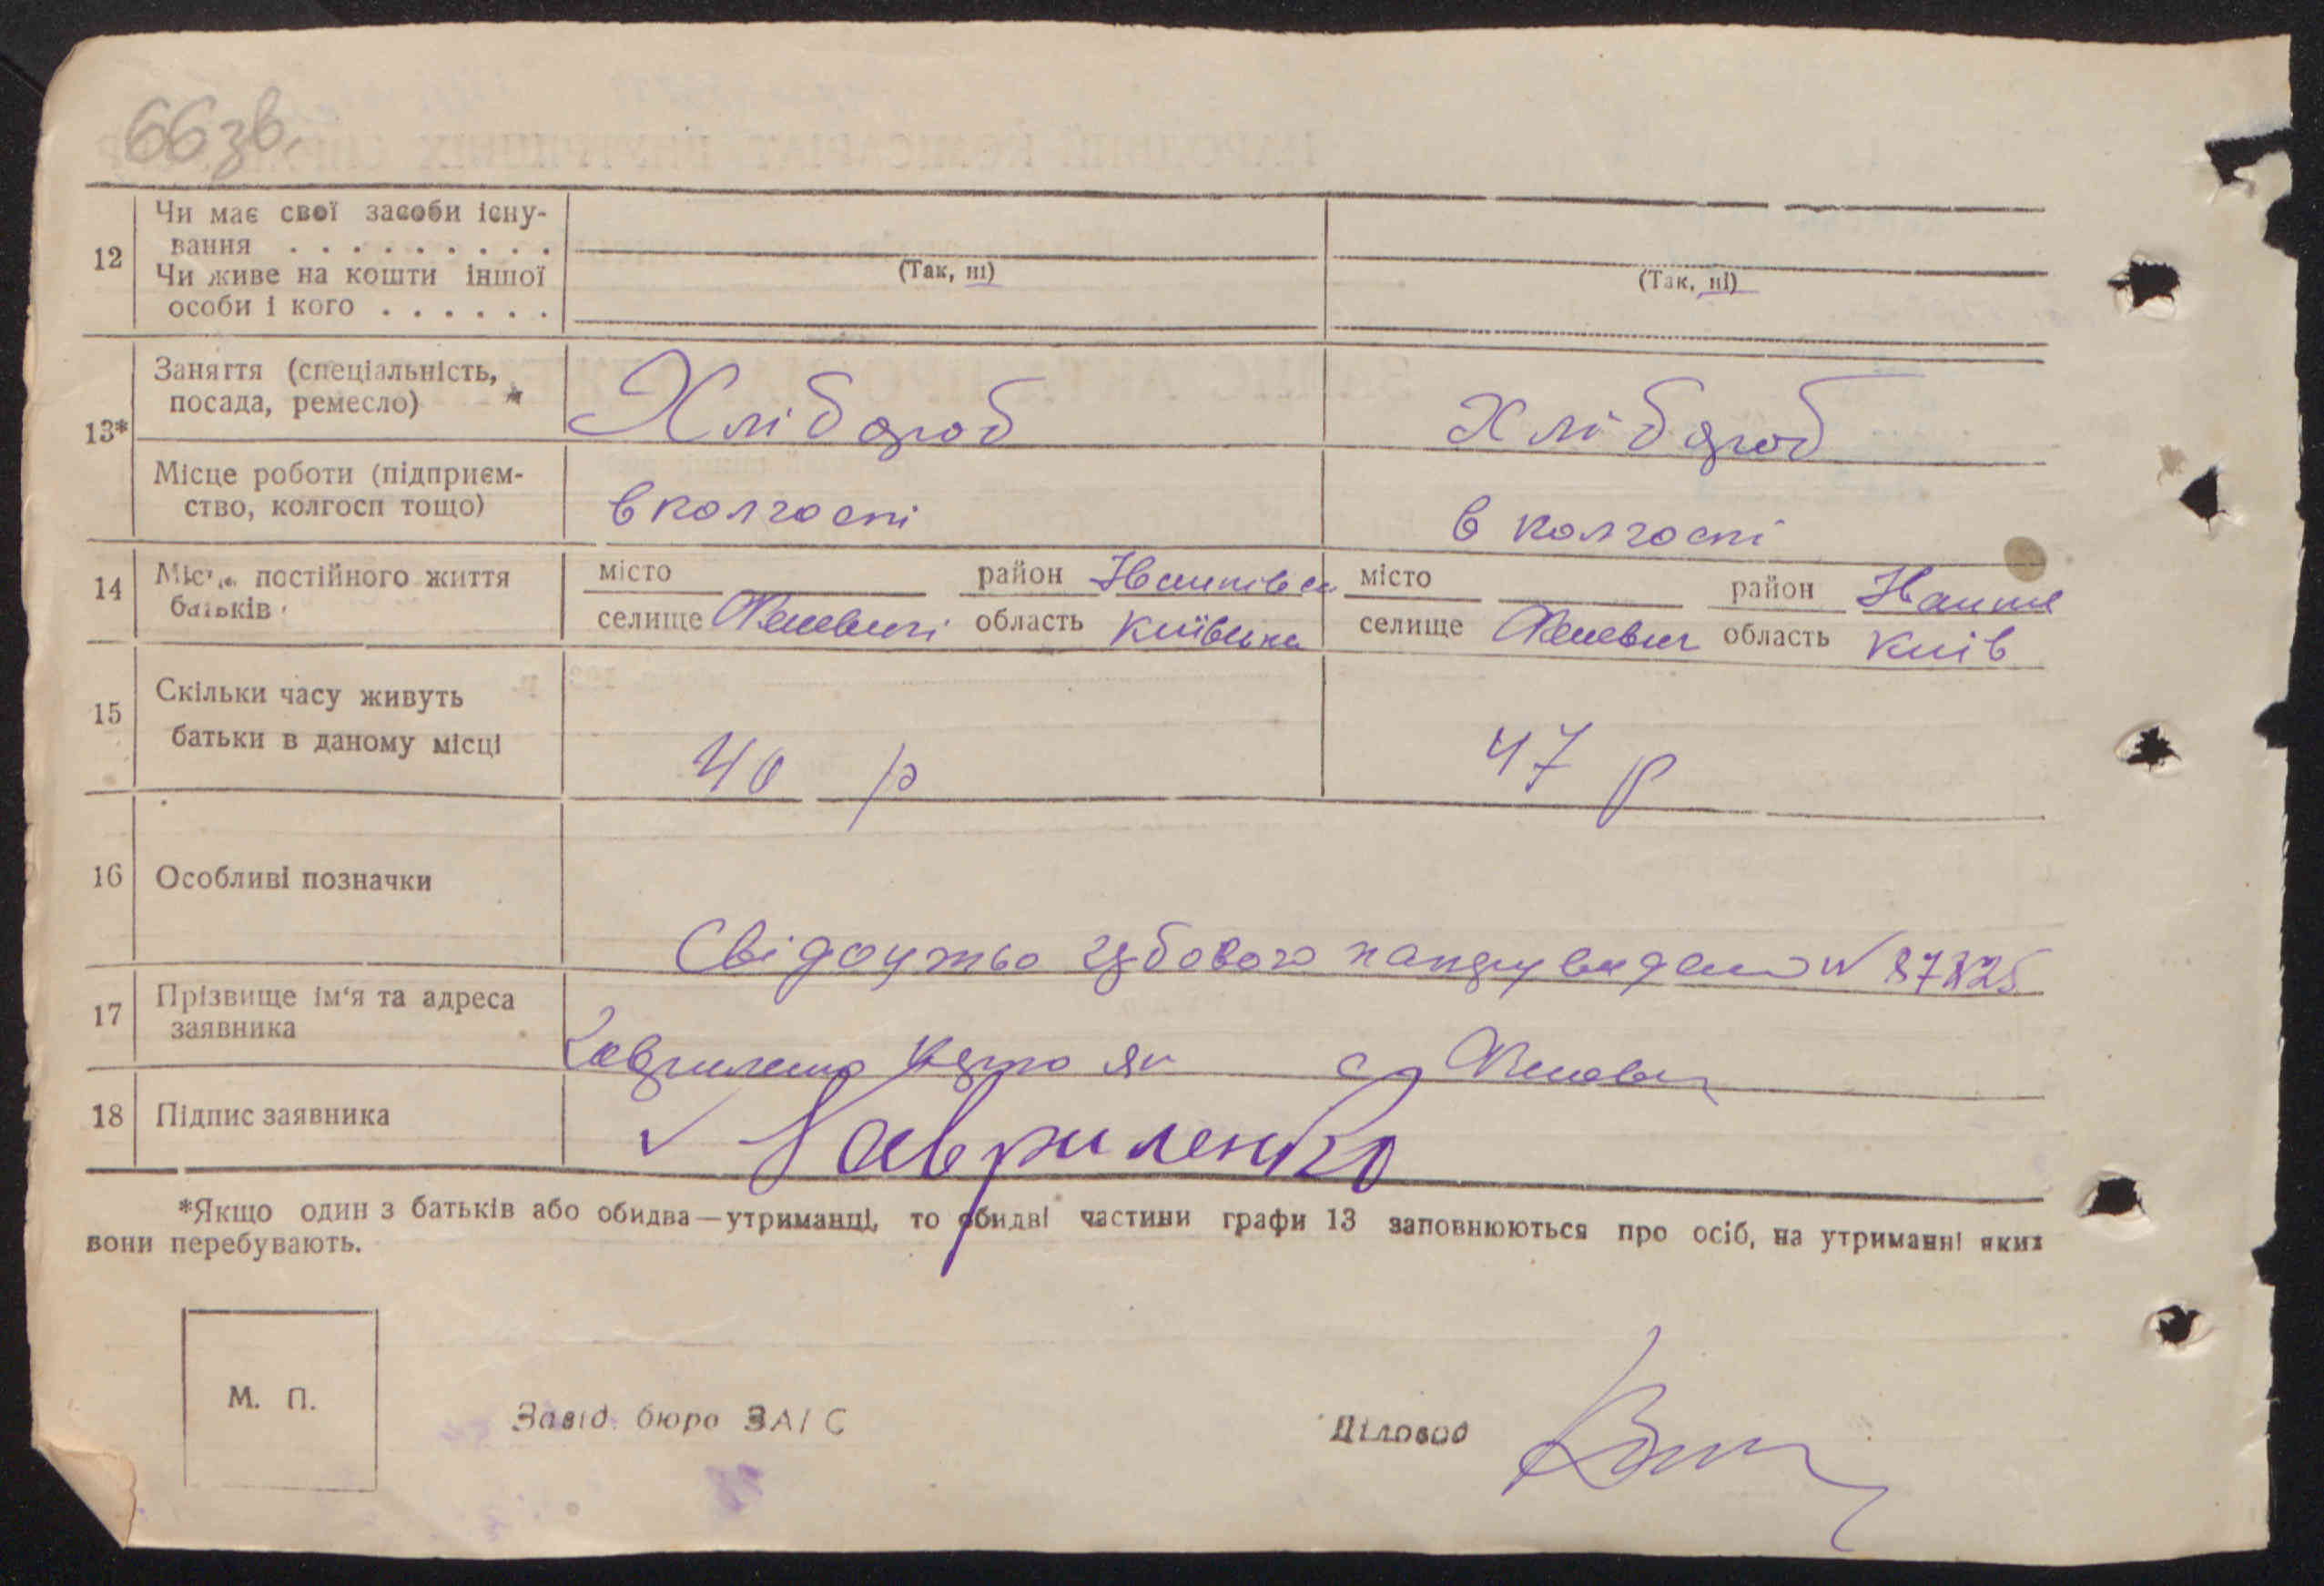 66 зв.
12 Чи має свої засоби існу-
вання . . . . . . . . .
Чи живе на кошти іншої
особи і кого . . . . . .
(Так, ні) (Так, ні)
13* Заняття (спеціальність,
посада, ремесло) Хлібороб Хлібороб
Місце роботи (підприєм-
ство, колгосп тощо) в колгоспі в колгоспі
14 Місце постійного життя
батьків
місто район місто район
селище область Київська селище область Київ
15 Скільки часу живуть
батьки в даному місці 40 р 47 р
16 Особливі позначки
Свідоцтво
17 Прізвище ім'я та адреса
заявника
18 Підпис заявника Гавриленко
*Якщо один з батьків або обидва—утриманці, то обидві частини графи 13 заповнюються про осіб, на утриманні яких
вони перебувають.
М. П.
Завід. бюро ЗАГС Діловод